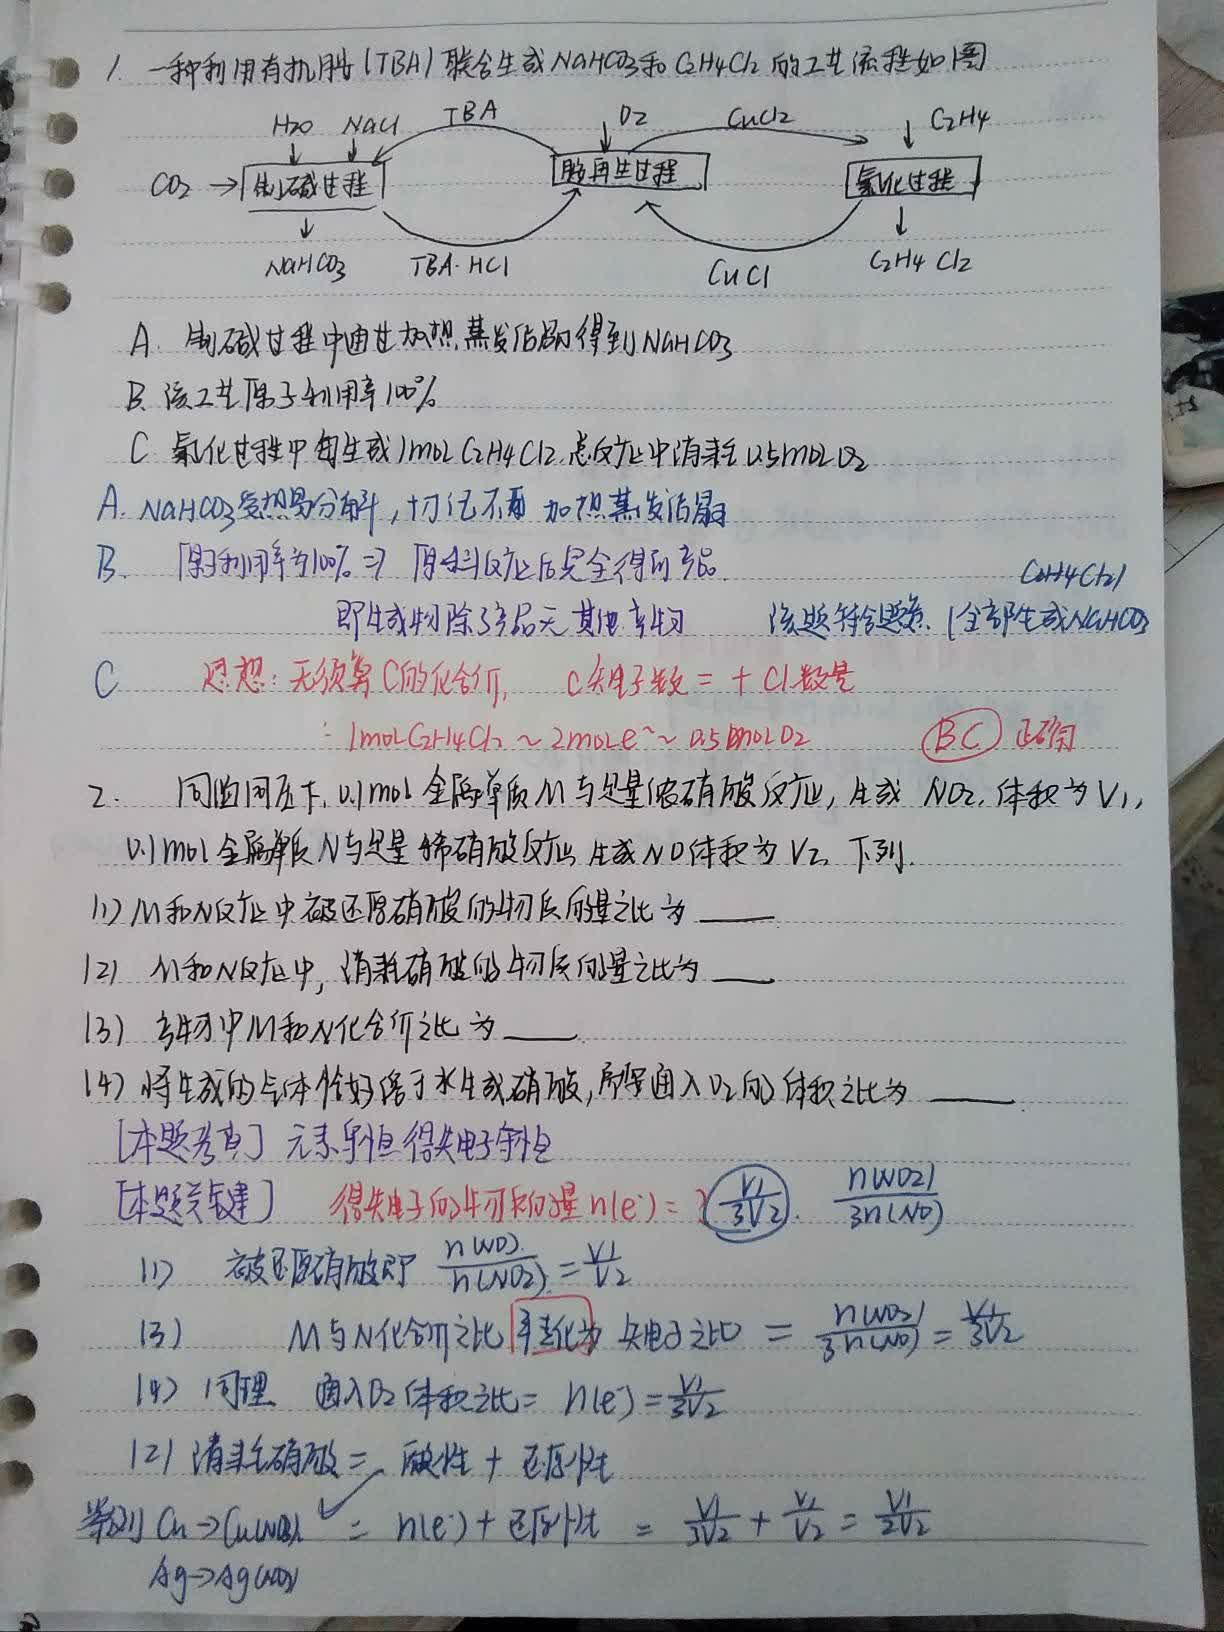 1. 一种利用有机胺(TBA)联合生成NaHCO3和C2H4Cl2的工艺流程如图
H2O NaCl TBA O2 CuCl2 C2H4
CO2 → 制碱过程 胺再生过程 氯化过程
NaHCO3 TBA·HCl CuCl C2H4Cl2
A. 制碱过程中通过加热蒸发结晶得到NaHCO3
B. 该工艺原子利用率100%
C 氯化过程中每生成1molC2H4Cl2.总反应中消耗0.5molO2
A. NaHCO3受热易分解,切记不可加热蒸发结晶
B. 原子利用率为100% => 原料反应后完全得到产品.
C2H4Cl2)
即生成物除了产品无其他产物 该题符合题意. (全部生成NaHCO3
C 思想:无须算C的化合价, C失电子数 = + Cl数量
∴ 1molC2H4Cl2 ~ 2mole⁻ ~ 0.5molO2 BC 正确
2. 同温同压下,0.1mol金属单质M与足量浓硝酸反应,生成 NO2,体积为V1,
0.1mol金属单质N与足量稀硝酸反应生成NO体积为V2 下列.
(1) M和N反应中被还原硝酸的物质的量之比为 ____
(2) M和N反应中,消耗硝酸的物质的量之比为 ____
(3) 产物中M和N化合价之比为 ____.
(4) 将生成的气体恰好溶于水生成硝酸,所需通入O2的体积之比为 ____.
[本题考点] 元素守恒 得失电子守恒
[本题关键] 得失电子的物质的量n(e⁻) = V1/3V2. n(NO2)/3n(NO)
(1) 被还原硝酸即 n(NO)/n(NO2) = V1/V2
(3) M与N化合价之比 转化为 失电子之比 = n(NO2)/3n(NO) = V1/3V2
(4) 同理 通入O2体积之比 = n(e⁻) = V1/3V2
(2) 消耗硝酸 = 酸性 + 还原性
类别 Cu→Cu(NO3)2 = n(e⁻) + 还原性 = V1/3V2 + V1/V2 = V1/2V2
Ag→Ag(NO3)